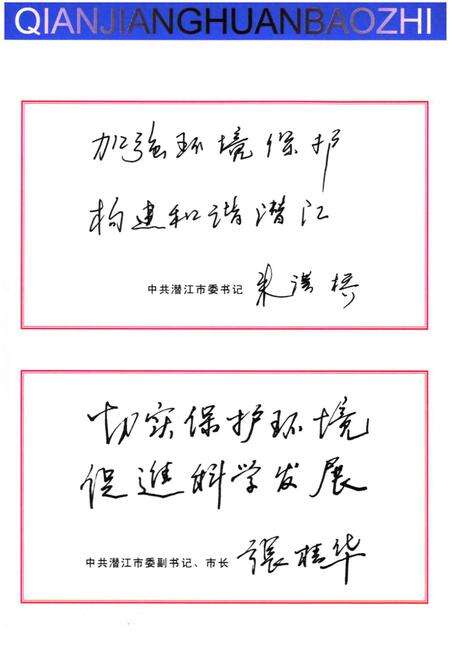 QIANJIANGHUANBAOZHI
加强环境保护
构建和谐潜江
中共潜江市委书记 朱漢桥
切实保护环境
促進科学发展
中共潜江市委副书记、市长 張桂华